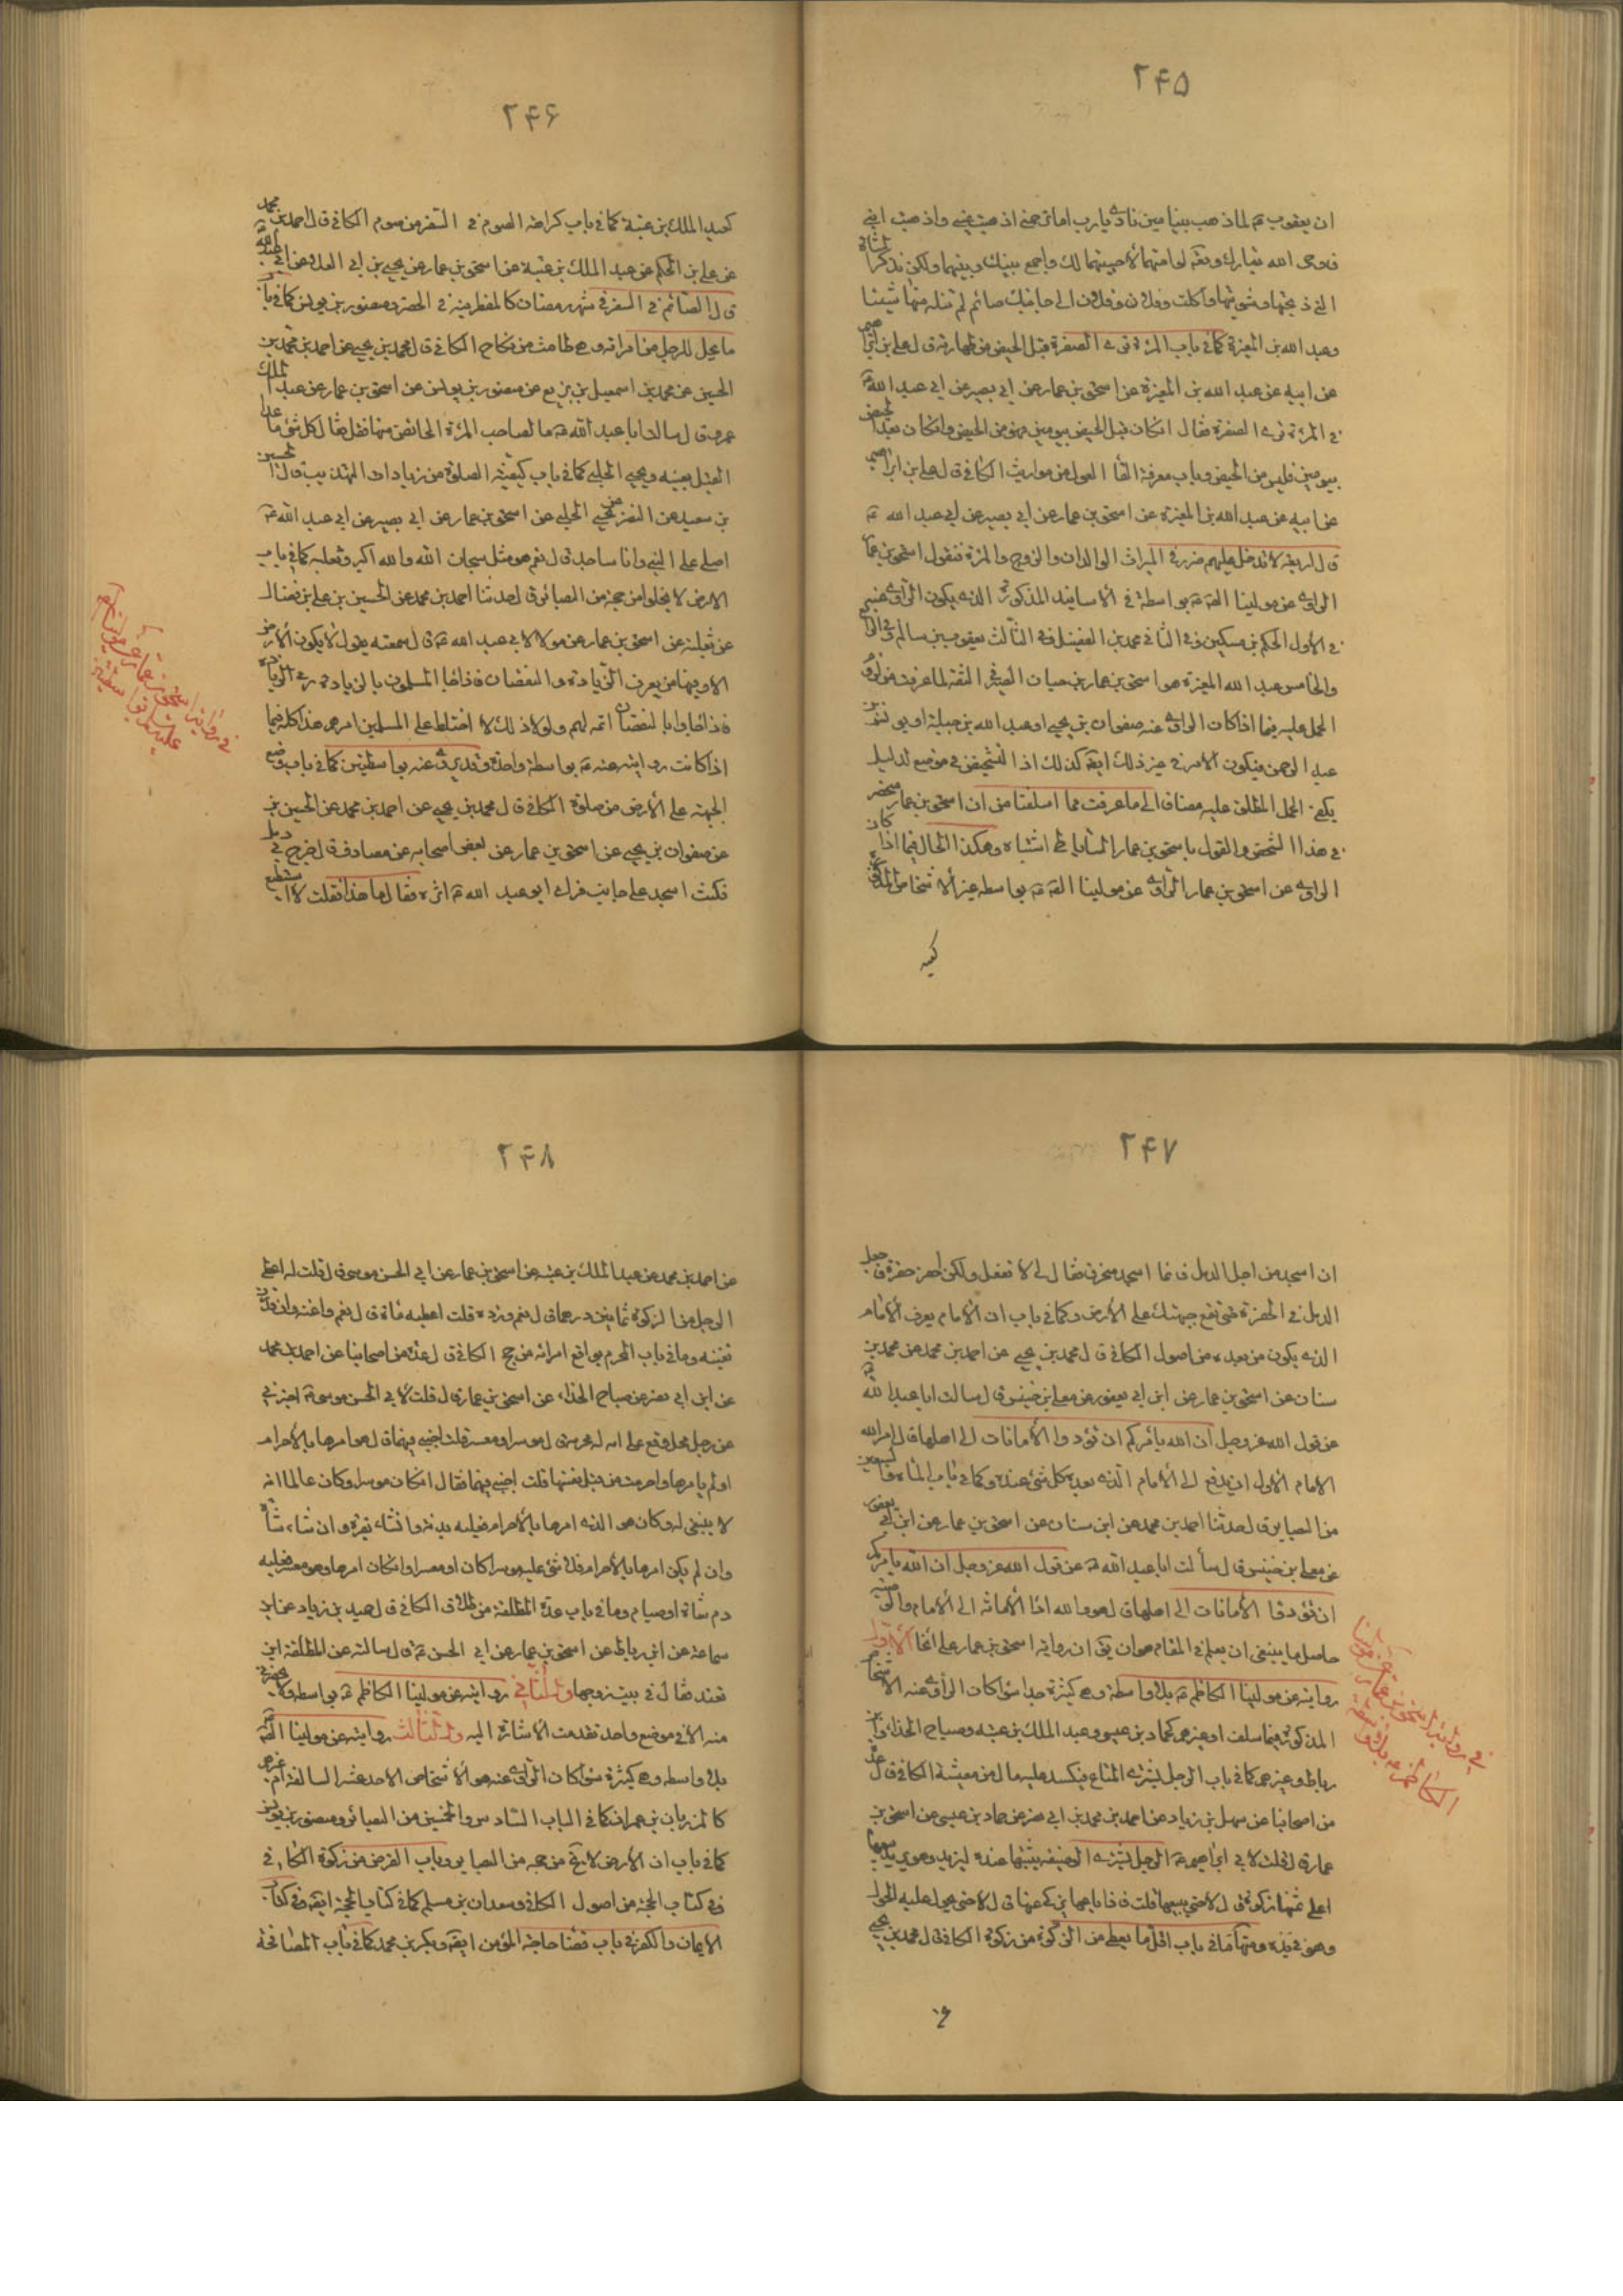 ٢۴۵
ان يعقوب ع لما ذهب بنيامين نادى يارب اما ترحمني اذهبت عيني واذهبت ابني
فاوحى الله تبارك وتعالى لو امتهما لاحييتهما لك واجمع بينك وبينهما ولكن تذكر الشاة
التي ذبحتها وشويتها واكلت وفلان وفلان الى جانبك صائم لم تنله منها شيئا
وعبد الله بن المغيرة كما في باب المرئة ترى الصفرة قبل الحيض من طهارته ق ل علي بن ابراهيم
عن ابيه عن عبد الله بن المغيرة عن اسحق بن عمار عن ابي بصير عن ابي عبد الله ع
في المرئة ترى الصفرة فقال انكان قبل الحيض بيومين فهو من الحيض وانكان بعد الحيض
بيومين فليس من الحيض وباب معرفة القاء العول من مواريث الكافي ق ل علي بن ابراهيم
عن ابيه عن عبد الله بن المغيرة عن اسحق بن عمار عن ابي بصير عن ابي عبد الله ع
ق ل اربعة لا يدخل عليهم ضرر في الميراث الوالدان والزوج والمرئة فنقول اسحق بن عمار
الراوي عن مولينا الص ع بواسطة في الاسانيد المذكورة الذي يكون الراوي عنه
في الاول الحكم بن مسكين وفي الثاني محمد بن الفضيل وفي الثالث يعقوب بن سالم وفي الرابع
والخامس عبد الله المغيرة هو اسحق بن عمار بن حيان الصيرفي الثقة لما عرفت من لزوم
الحمل عليه فيما اذا كان الراوي عنه صفوان بن يحيى او عبد الله بن جبلة او يونس بن
عبد الرحمن فيكون الامر في غير ذلك ايضا كذلك اذ التشخيص في موضع لدليل
يكفي لحمل المطلق عليه مضافا الى ما عرفت مما اسلفنا من ان اسحق بن عمار منحصر
في هذا الشخص والقول باسحق بن عمار الساباطي اشتباه وهكذا الحال فيما اذا كان
الراوي عن اسحق بن عمار الراوي عن مولينا الص ع بواسطه غير الاشخاص المذكورة
كعبد
٢۴۶
كعبد الملك بن عتبة كما في باب كراهة الصوم في السفر من صوم الكافي ق ل احمد بن محمد
عن علي بن الحكم عن عبد الملك بن عتبة عن اسحق بن عمار عن يحيى بن ابي العلا عن ابي عبد الله ع
ق ل الصائم في السفر في شهر رمضان كالمفطر فيه في الحضر ومنصور بن يونس كما في باب
ما يحل للرجل من امراته وهي طامث من نكاح الكافي ق ل محمد بن يحيى عن احمد بن محمد بن
الحسين عن محمد بن اسمعيل بن بزيع عن منصور بن يونس عن اسحق بن عمار عن عبد الملك
عمرو ق ل سالت ابا عبد الله ع ما لصاحب المرئة الحائض منها فقال كل شئ ما عدا
القبل بعينه ويحيى الحلبي كما في باب كيفية الصلوة من زيادات التهذيب ق ل الحسين
بن سعيد عن النضر عن يحيى الحلبي عن اسحق بن عمار عن ابي بصير عن ابي عبد الله ع
اصلي على النبي وانا ساجد ق ل نعم هو مثل سبحان الله والله اكبر وثعلبه كما في باب
الارض لا يخلو من حجة من البصائر ق ل حدثنا احمد بن محمد عن الحسين بن علي بن فضال
عن ثعلبة عن اسحق بن عمار عن مولا لابي عبد الله ع ق ل سمعته يقول لا يكون الارض
الا وفيها من يعرف الزيادة والنقصان فاذا جاء المسلمون بالزيادة رمى الزيادة
فاذا جاوا بالنقصان اتمه لهم ولولا ذلك لا اختلط على المسلمين امرهم هذا كله فيما
اذا كانت روايته عنه ع بواسطة واحدة وقد يروى عنه بواسطتين كما في باب وضع
الجبهة على الارض من صلوة الكافي ق ل محمد بن يحيى عن احمد بن محمد عن الحسين بن
عن صفوان بن يحيى عن اسحق بن عمار عن بعض اصحابه عن مصادف ق ل خرج بي دمل
فكنت اسجد على جانب فراى ابو عبد الله ع اثره فقال ما هذا فقلت لا استطيع
في رواية اسحق بن عمار عن مولينا الص
عليه السلام بواسطتين
٢۴٧
ان اسجد من اجل الدمل فانما اسجد منحرفا فقال لي لا تفعل ولكن احفر حفرة فاجعل
الدمل في الحفرة حتى تقع جبهتك على الارض وكما في باب ان الامام يعرف الامام
الذي يكون من بعده من اصول الكافي ق ل محمد بن يحيى عن احمد بن محمد عن محمد بن
سنان عن اسحق بن عمار عن ابن ابي يعفور عن معلى بن خنيس ق ل سالت ابا عبد الله ع
عن قول الله عز وجل ان الله يامركم ان تؤدوا الامانات الى اهلها ق ل امر الله
الامام الاول ان يدفع الى الامام الذي بعده كل شئ عنده وكما في باب
من البصاير ق ل حدثنا احمد بن محمد عن ابن سنان عن اسحق بن عمار عن ابن ابي يعفور
عن معلى بن خنيس ق ل سألت ابا عبد الله ع عن قول الله عز وجل ان الله يامركم
ان تؤدوا الأمانات الى اهلها ق ل هو والله اداء الامانة الى الامام والوصية
حاصل ما ينبغي ان يعلم في المقام هو ان يق ان رواية اسحق بن عمار على انحاء الاول
روايته عن مولينا الكاظم ع بلا واسطة وهي كثيرة جدا سواء كان الراوي عنه الاشخاص
المذكورة فيما سلف او غيرهم كحماد بن عيسى وعبد الملك بن عتبه وصباح الحذاء وابن
رباط وغيرهم كما في باب الرجل يشتري المتاع فيكسد عليه مال من معيشة الكافي ق ل عدة
من اصحابنا عن سهل بن زياد عن احمد بن محمد بن ابي نصر عن حماد بن عيسى عن اسحق بن
عمار ق ل قلت لابي ابراهيم ع الرجل يشتري الوصيفه يثبتها عنده لتزيد وهو يريد بيعها
اعلى ثمنها زكوة ق ل لا حتى يبيعها قلت فاذا باعها يزكي ثمنها ق ل لا حتى يحول عليه الحول
وهو في يده ومنها ما في باب اقل ما يعطى من الزكوة من زكوة الكافي ق ل محمد بن يحيى
في رواية اسحق بن عمار عن مولينا
الكاظم ع بلا واسطة
٢۴٨
عن احمد بن محمد عن عبد الملك بن عتبه عن اسحق بن عمار عن ابي الحسن موسى ق ل قلت له اعطي
الرجل من الزكوة ثمانين درهما ق ل نعم وزده قلت اعطيه مائة ق ل نعم واغنه وان قدرت
تغنيه وما في باب المحرم يواقع امراته من حج الكافي ق ل عدة من اصحابنا عن احمد بن محمد
عن ابن ابي نصر عن صباح الحذاء عن اسحق بن عمار ق ل قلت لابي الحسن موسى ع اخبرني
عن رجل محل وقع على امة له محرمة ق ل موسرا ومعسر قلت اجبني فيهما ق ل هو امرها بالاحرام
او لم يامرها واحرمت من قبل نفسها قلت اجبني فيهما فقال انكان موسرا وكان عالما انه
لا ينبغي له وكان هو الذي امرها بالاحرام فعليه بدنة وان شاء بقرة وان شاء شاة
وان لم يكن امرها بالاحرام فلا شئ عليه موسرا كان او معسرا وانكان امرها وهو معسر فعليه
دم شاة او صيام وما في باب عدة المطلقة من طلاق الكافي ق ل حميد بن زياد عن ابن
سماعة عن ابن رباط عن اسحق بن عمار عن ابي الحسن ع ق ل سالته عن المطلقة اين
تعتد فقال في بيت زوجها والثاني روايته عن مولينا الكاظم ع بواسطه ولا يحضرني
منه الا في موضع واحد تقدمت الاشارة اليه والثالث روايته عن مولينا الص ع
بلا واسطه وهي كثيرة سواء كان الراوي عنه هو الاشخاص الاحد عشر السالفة ام غيرهم
كالمرزبان بن عمران كما في الباب السادس والخمسين من البصائر ومنصور بن يونس
كما في باب ان الارض لا يخ من حجه من البصاير وباب الفرض من زكوة الكافي
وفي كتاب الحجة من اصول الكافي وسعدان بن مسلم كما في كتاب الحجة ايض وفي كتاب
الايمان والكفر في باب قضاء حاجة المؤمن ايض وبكر بن محمد كما في باب المصافحة